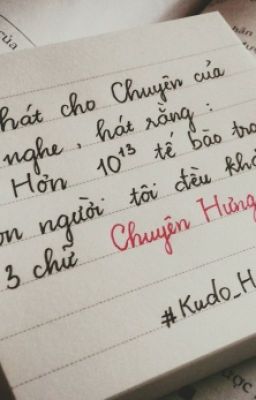 hát cho Chuyên của
nghe, hát rằng:
Hơn 10¹³ tế bào tro
on người tôi đều khắ
3 chữ Chuyên Hưng
#Kudo_H